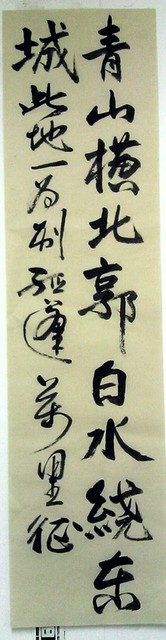 青山横北郭白水绕东
城此地一为别孤蓬万里征